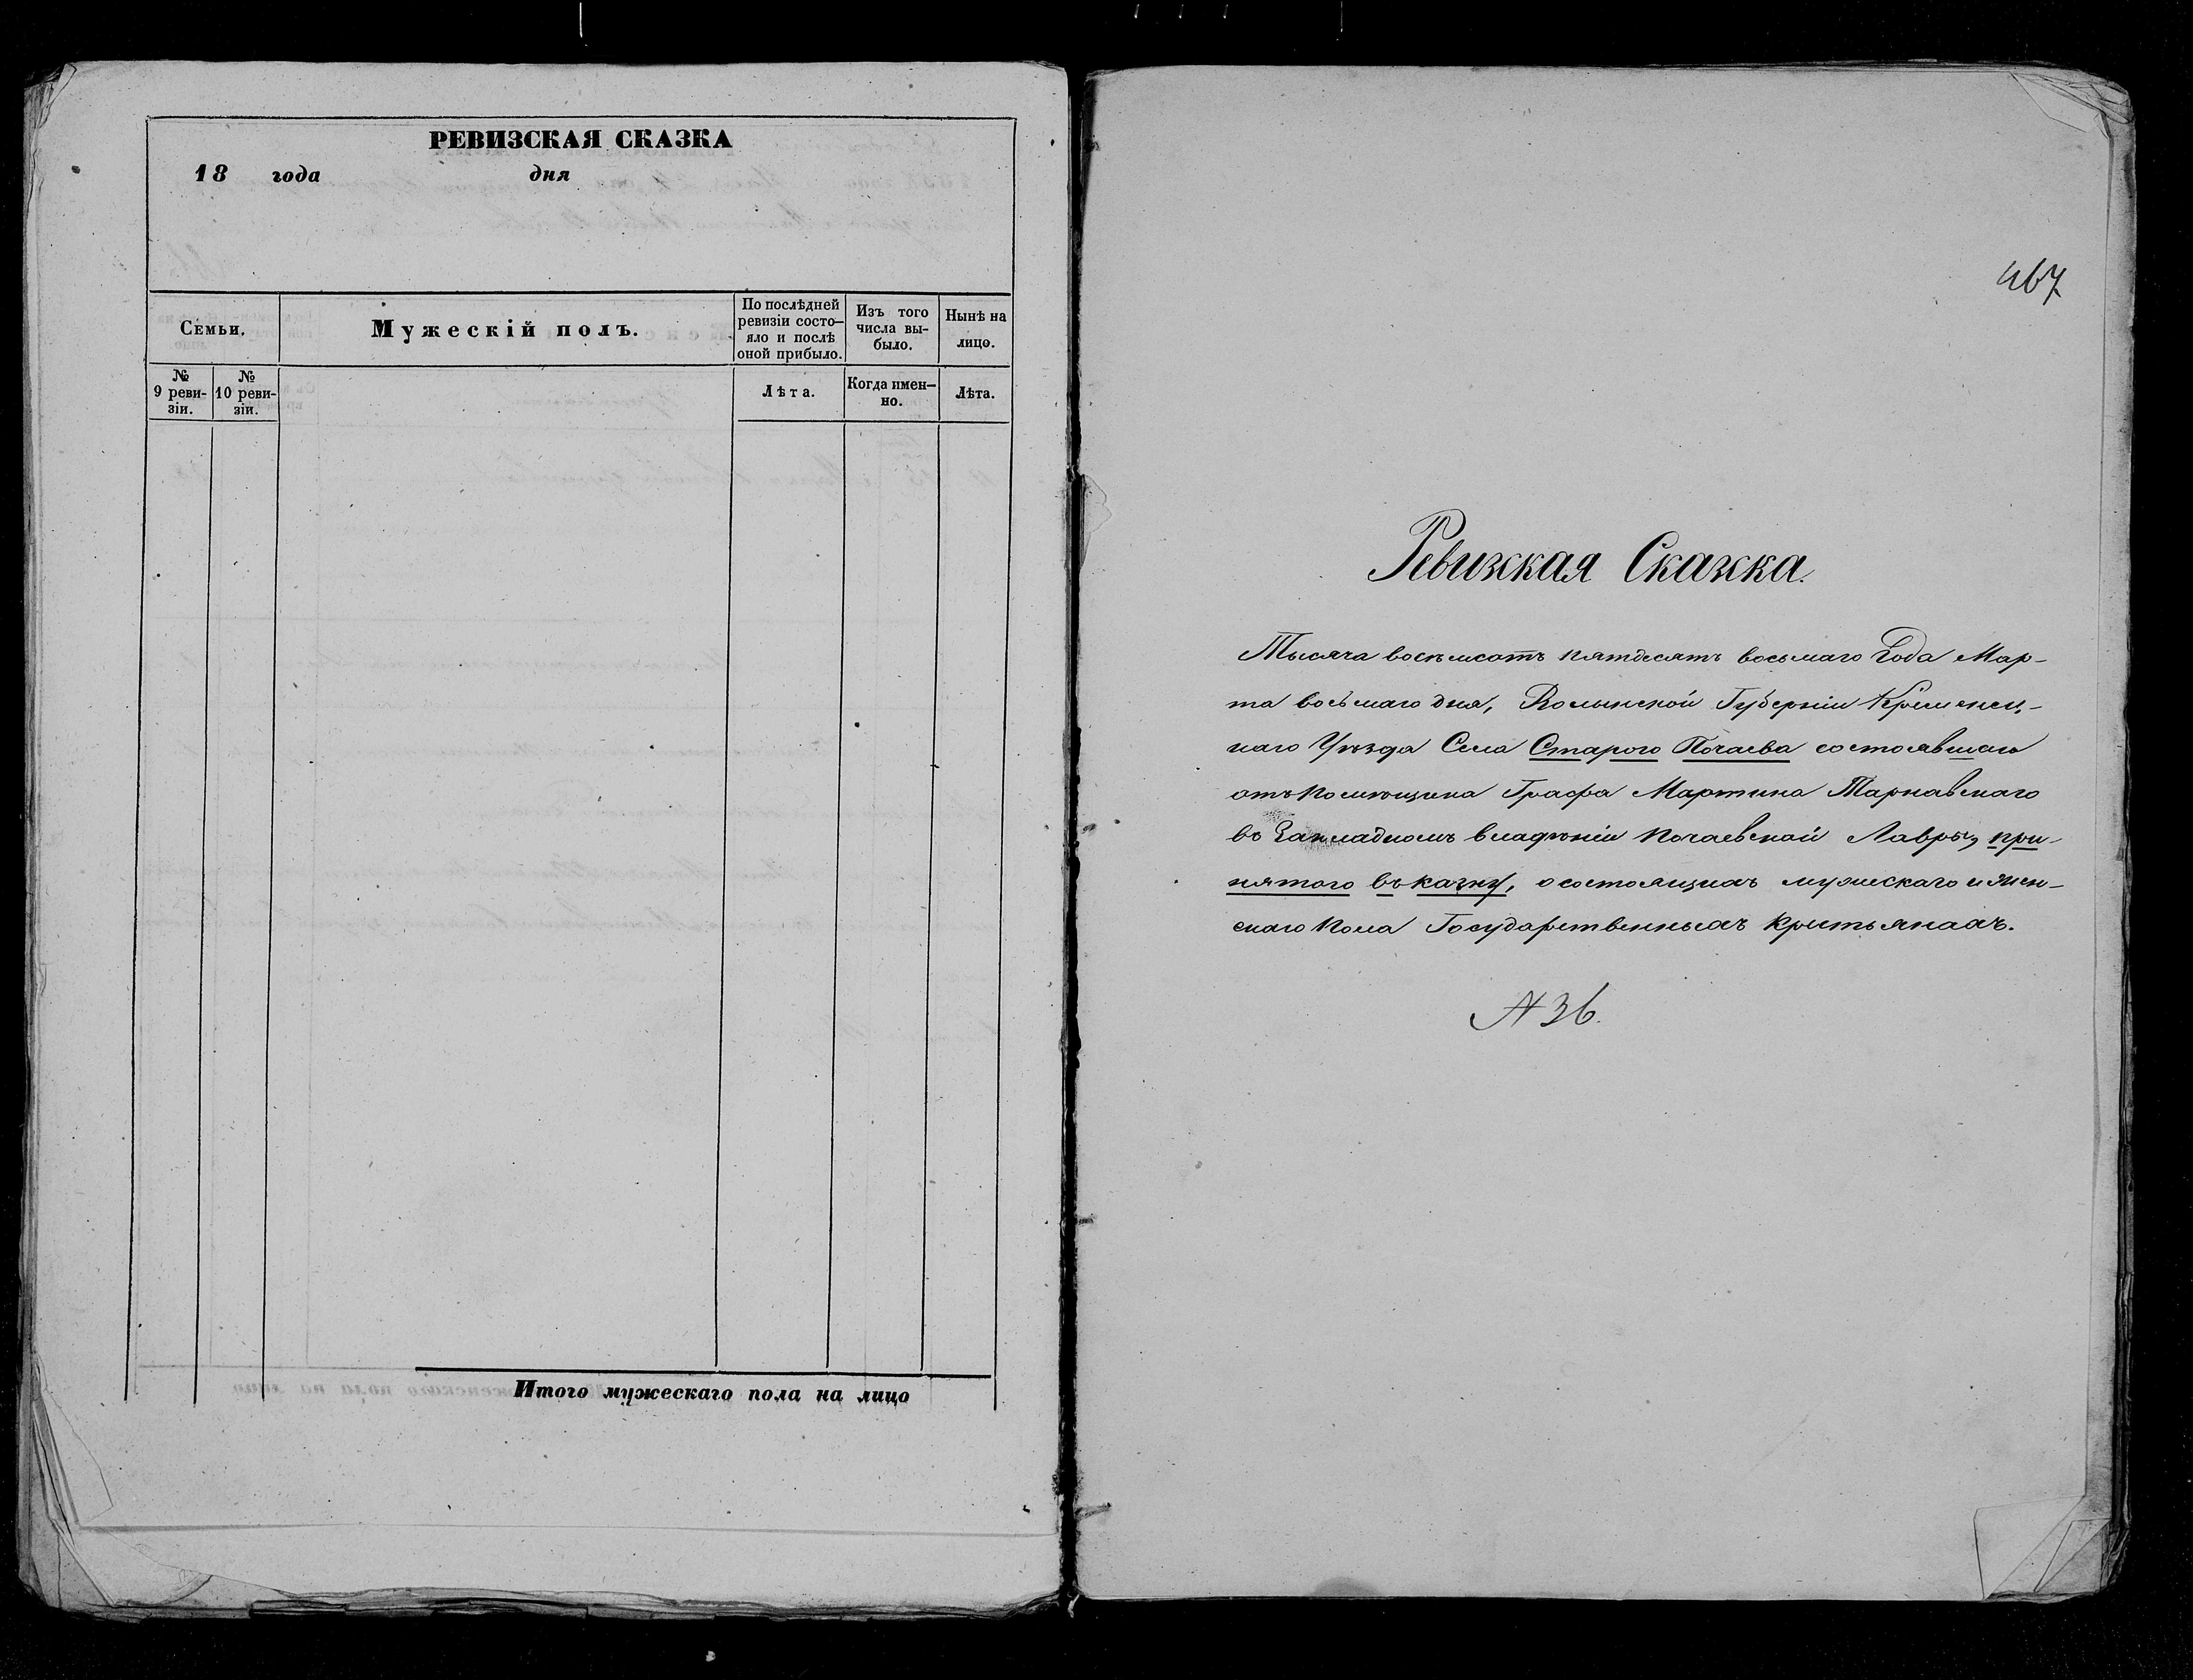 РЕВИЗСКАЯ СКАЗКА
18 года дня
Семьи.
Мужескій полъ.
По послѣдней
ревизіи состо-
яло и послѣ
оной прибыло.
Изъ того
числа вы-
было.
Нынѣ на
лицо.
№
9 реви-
зіи.
№
10 реви-
зіи.
Лѣта.
Когда имен-
но.
Лѣта.
Итого мужескаго пола на лицо
467
Ревизкая Сказка.
Тысяча восемсотъ пятдесятъ восьмаго Года Мар-
та восьмаго дня, Волынской Губерніи Кременец-
каго Уѣзда Села Старого Почаева состоявшаго
отъ помѣщика Графа Мартина Тарнавскаго
въ Закладномъ владѣніи Почаевской Лавры, при-
нятого въ казну, о состоящихъ мужескаго и жен-
скаго пола Государственныхъ крестьянахъ.
№ 36.